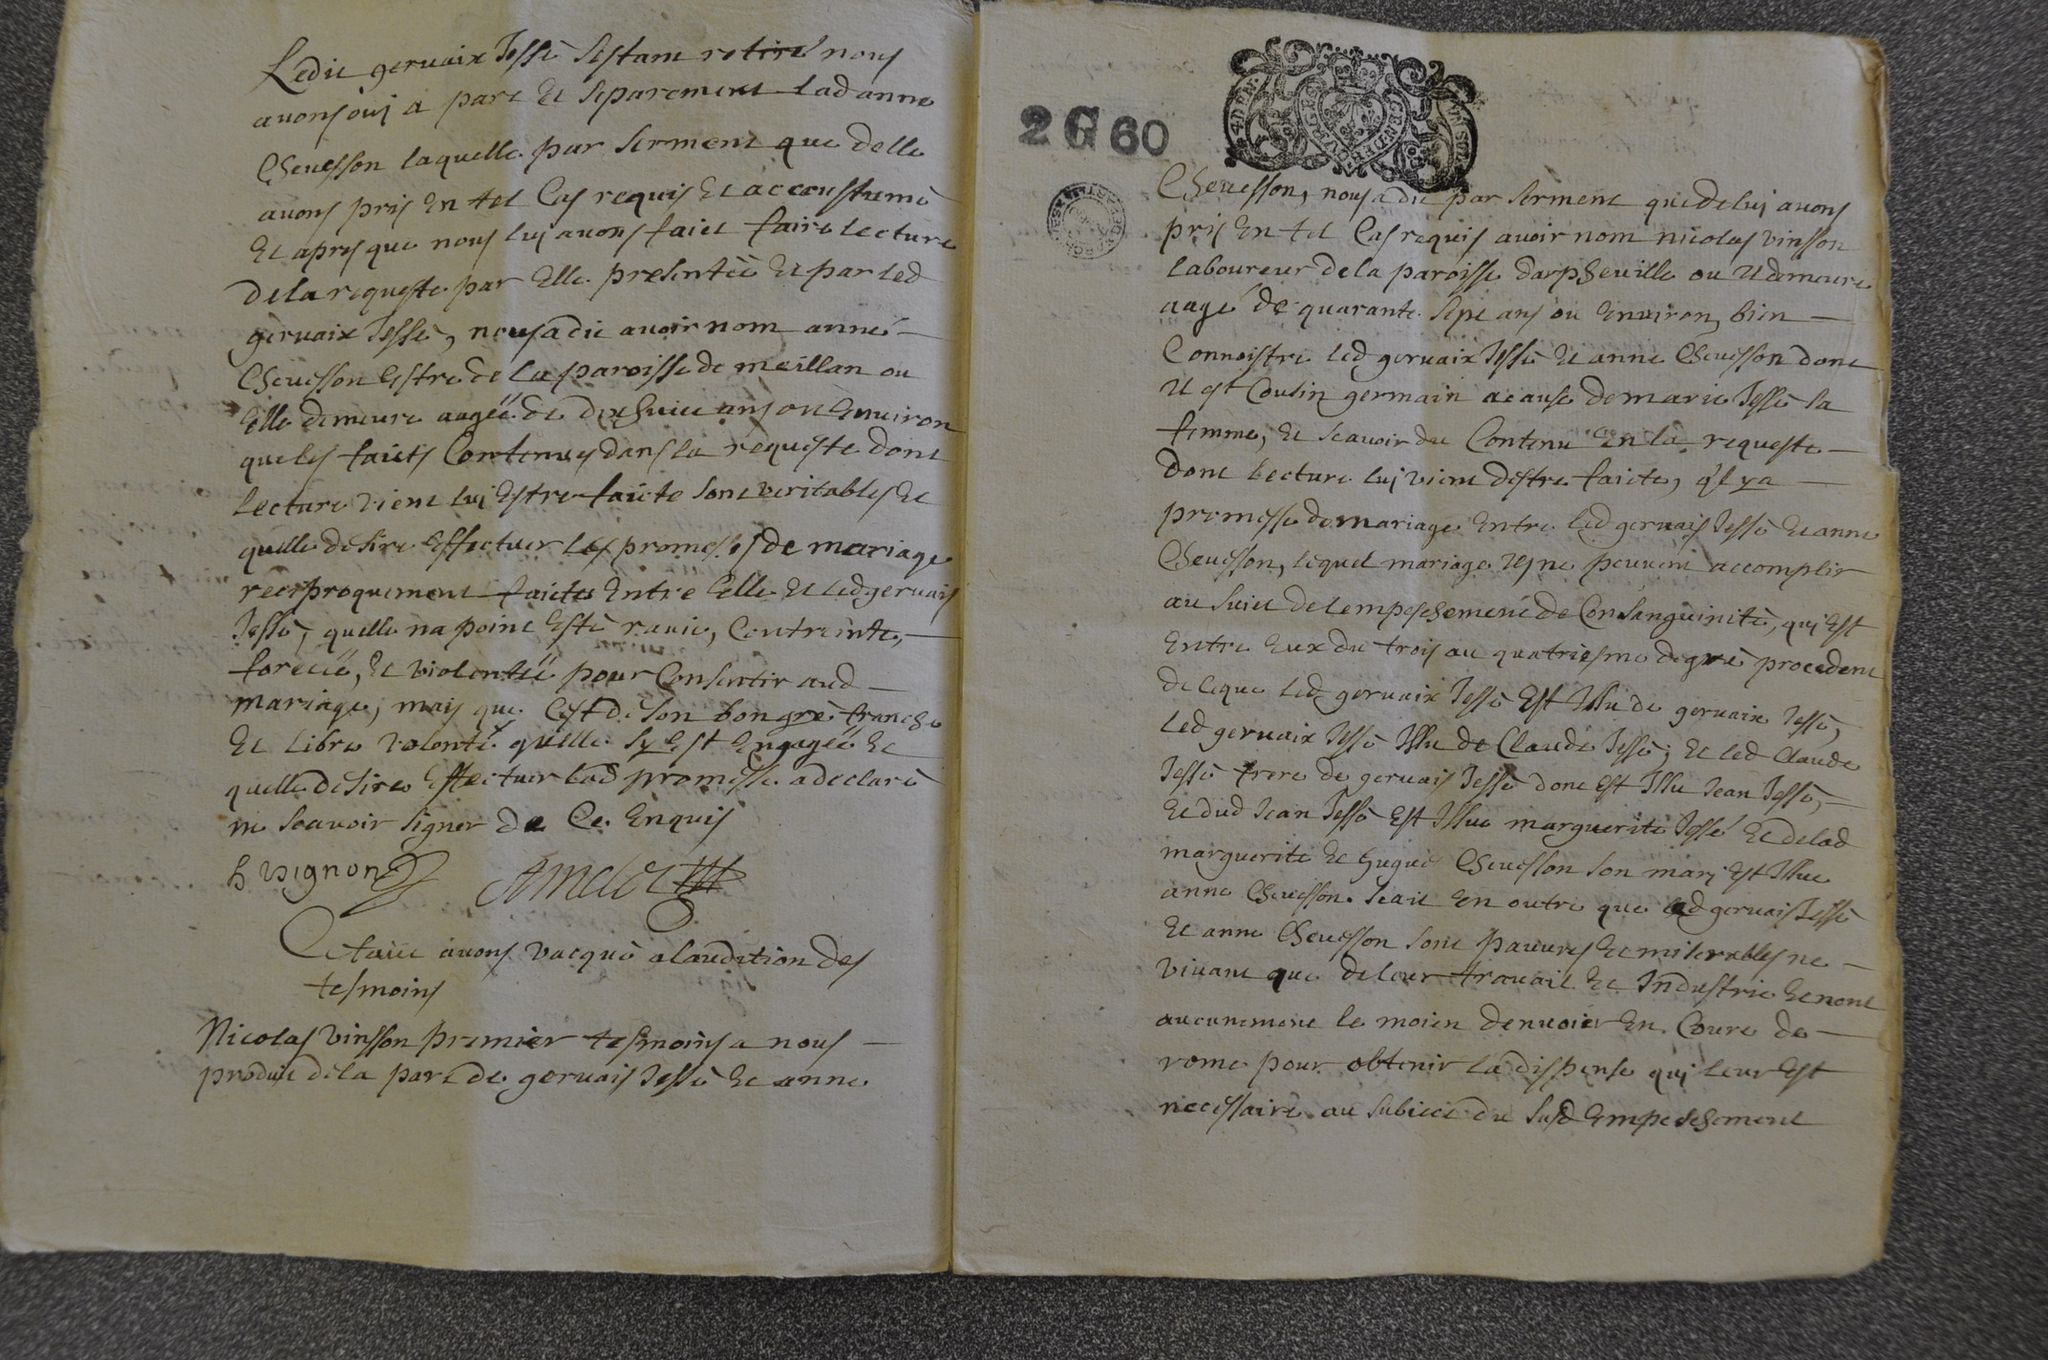 Ledit gervaix Jessé sestant retiré nous
avons oui a part et separement lad anne
Chevesson laquelle par serment que delle
avons pris en tel cas requis et accoustumé
et apres que nous luy avons faict faire lecture
de la requeste par elle presentée et par led
gervaix Jessé, nous a dit avoir nom anne
Chevesson estre de la paroisse de meillan ou
elle demeure aagée de dix huict ans ou environ
que les faicts contenus dans la requeste dont
lecture vient luy estre faicte sont veritables et
quelle desire effectuer les promesses de mariage
reciproquement faictes entre elle et led gervais
Jessé, quelle na point esté ravie, contreinte,
forcée, et violentée pour consentir aud
mariage, mais que cest de son bon gré franche
et libre volonté quelle sy est engagée et
quelle desire effectuer lad promesse a declaré
ne scavoir signer de ce enquis
h vignon Amelot
Ce faict avons vacqué a laudition des
tesmoins
Nicolas vinsson premier tesmoins a nous
produit de la part de gervais Jessé et anne
2 G 60
Chevesson, nous a dit par serment que de luy avons
pris en tel cas requis avoir nom nicolas vinsson
laboureur de la paroisse darpheuille ou il demeure
aagé de quarante sept ans ou environ, bien
connoistre led gervaix Jessé et anne Chevesson dont
il est cousin germain a cause de marie Jessé sa
femme, et scavoir du contenu en la requeste
dont lecture luy vient destre faicte, q'l y a
promesse de mariage entre led gervais Jessé et anne
Chevesson, lequel mariage ils ne peuvent accomplir
au suiet de lempeschement de consanguinité, qui est
entre eux du trois au quatriesme degré procedent
de ceque led gervaix Jessé est issu de gervaix Jessé,
led gervaix Jessé issu de Claude Jessé, et led Claude
Jessé frere de gervais Jessé dont est issu Jean Jessé,
et dud Jean Jessé est issue marguerite Jessé et de lad
marguerite et hugues Chevesson son mary est issue
anne Chevesson. scait en outre que led gervais Jessé
et anne Chevesson sont pauvres et miserables ne
vivant que de leur travail et industrie et nont
aucunement le moien denvoier en Court de
rome pour obtenir la dispense qui leur est
necessaire au subiect du susd empeschement